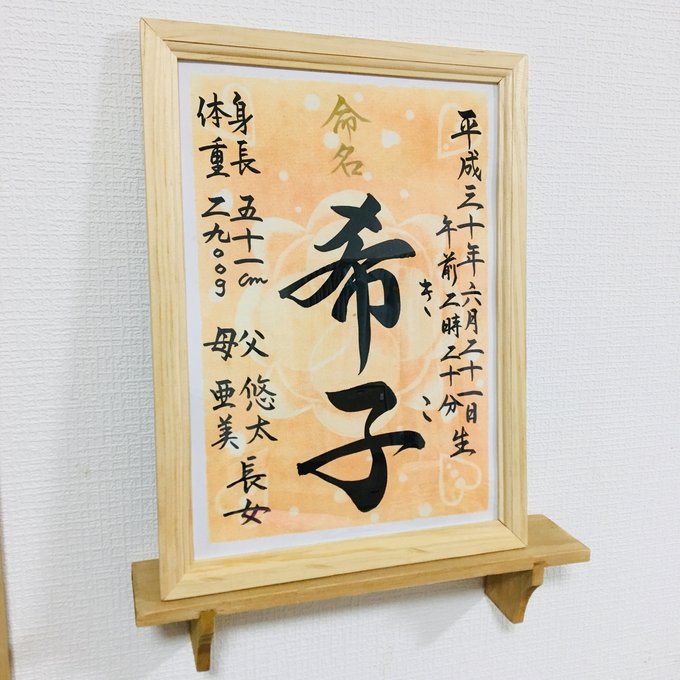 平成三十年六月二十一日生
午前二時二十分
命名
希子
きこ
身長 五十一cm
体重 二九〇〇g
父 悠太
母 亜美
長女